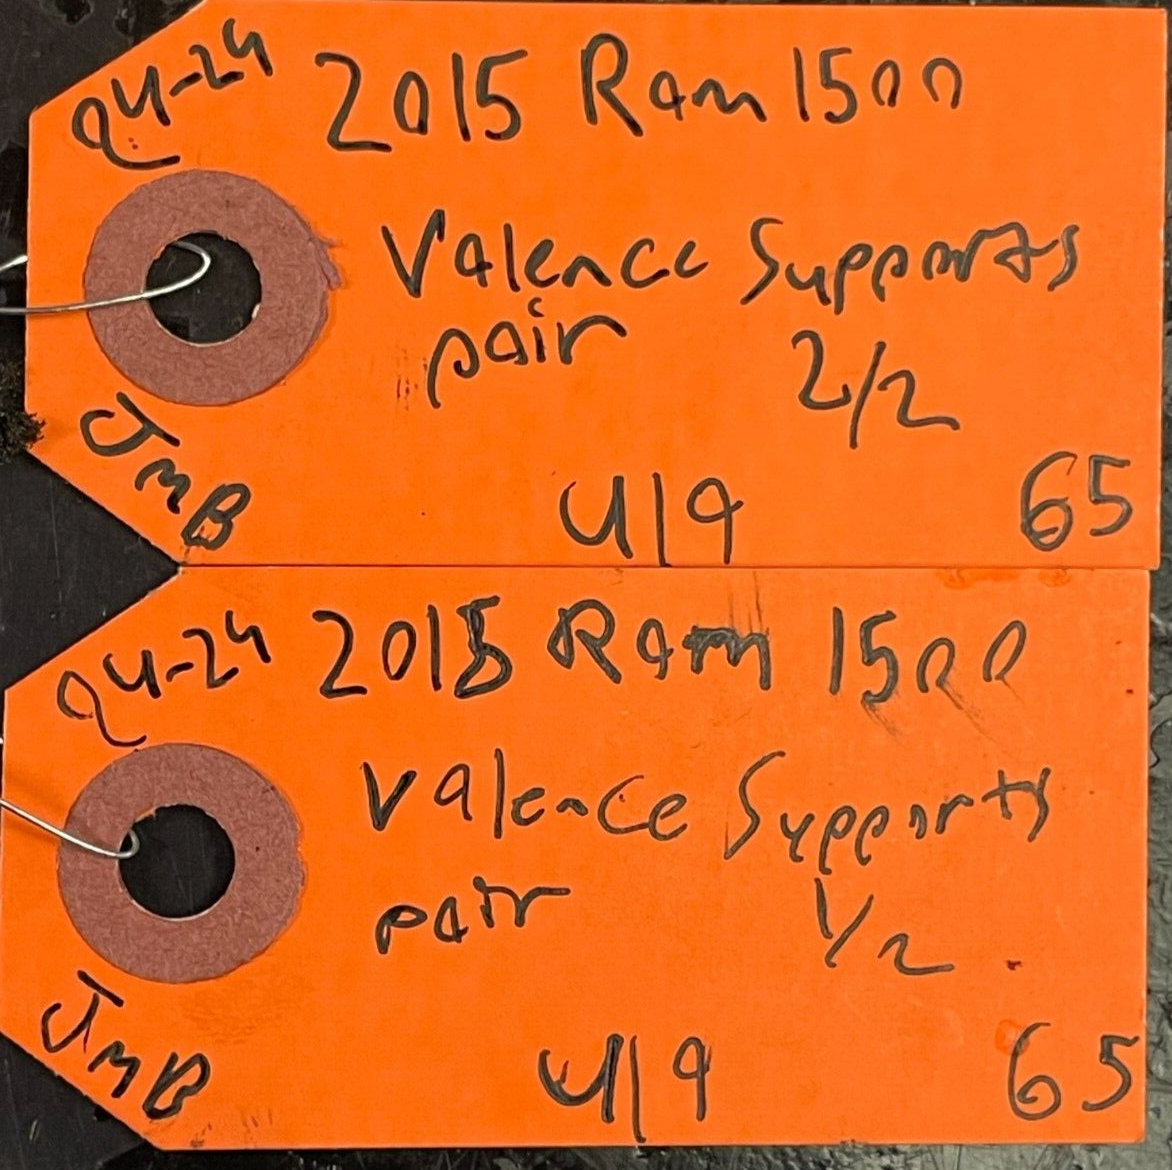 Q4-24
2015 Ram 1500
Valence Supports
pair 2/2
JMB
U19
65
Q4-24
2015 Ram 1500
Valence Supports
pair 1/2
JMB
U19
65